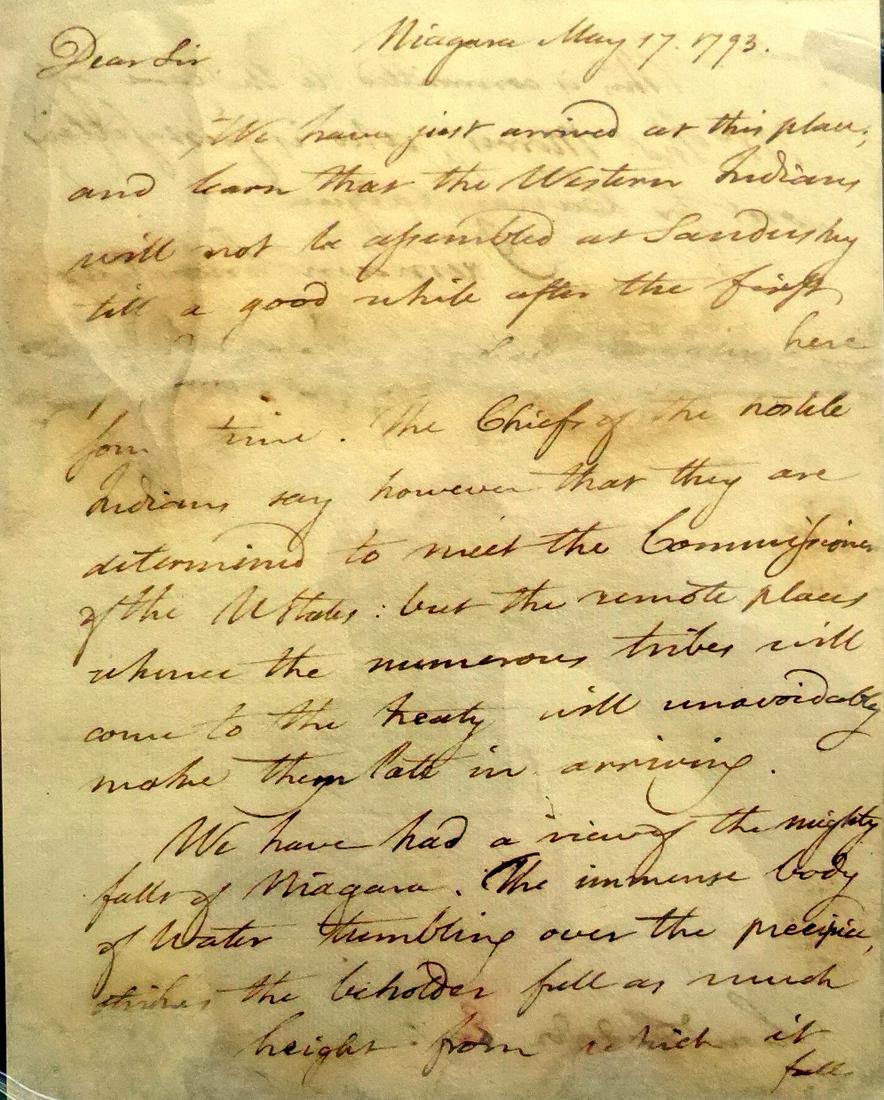 Niagara May 17. 1793.
Dear Sir
We have just arrived at this place;
and learn that the Western Indians
will not be assembled at Sandusky
till a good while after the first
here
some time. The Chiefs of the hostile
Indians say however that they are
determined to meet the Commissioners
of the UStates: but the remote places
whence the numerous tribes will
come to the treaty will unavoidably
make them late in arriving.
We have had a view of the mighty
falls of Niagara. The immense body
of Water tumbling over the precipice,
strikes the beholder full as much
height from which it
falls